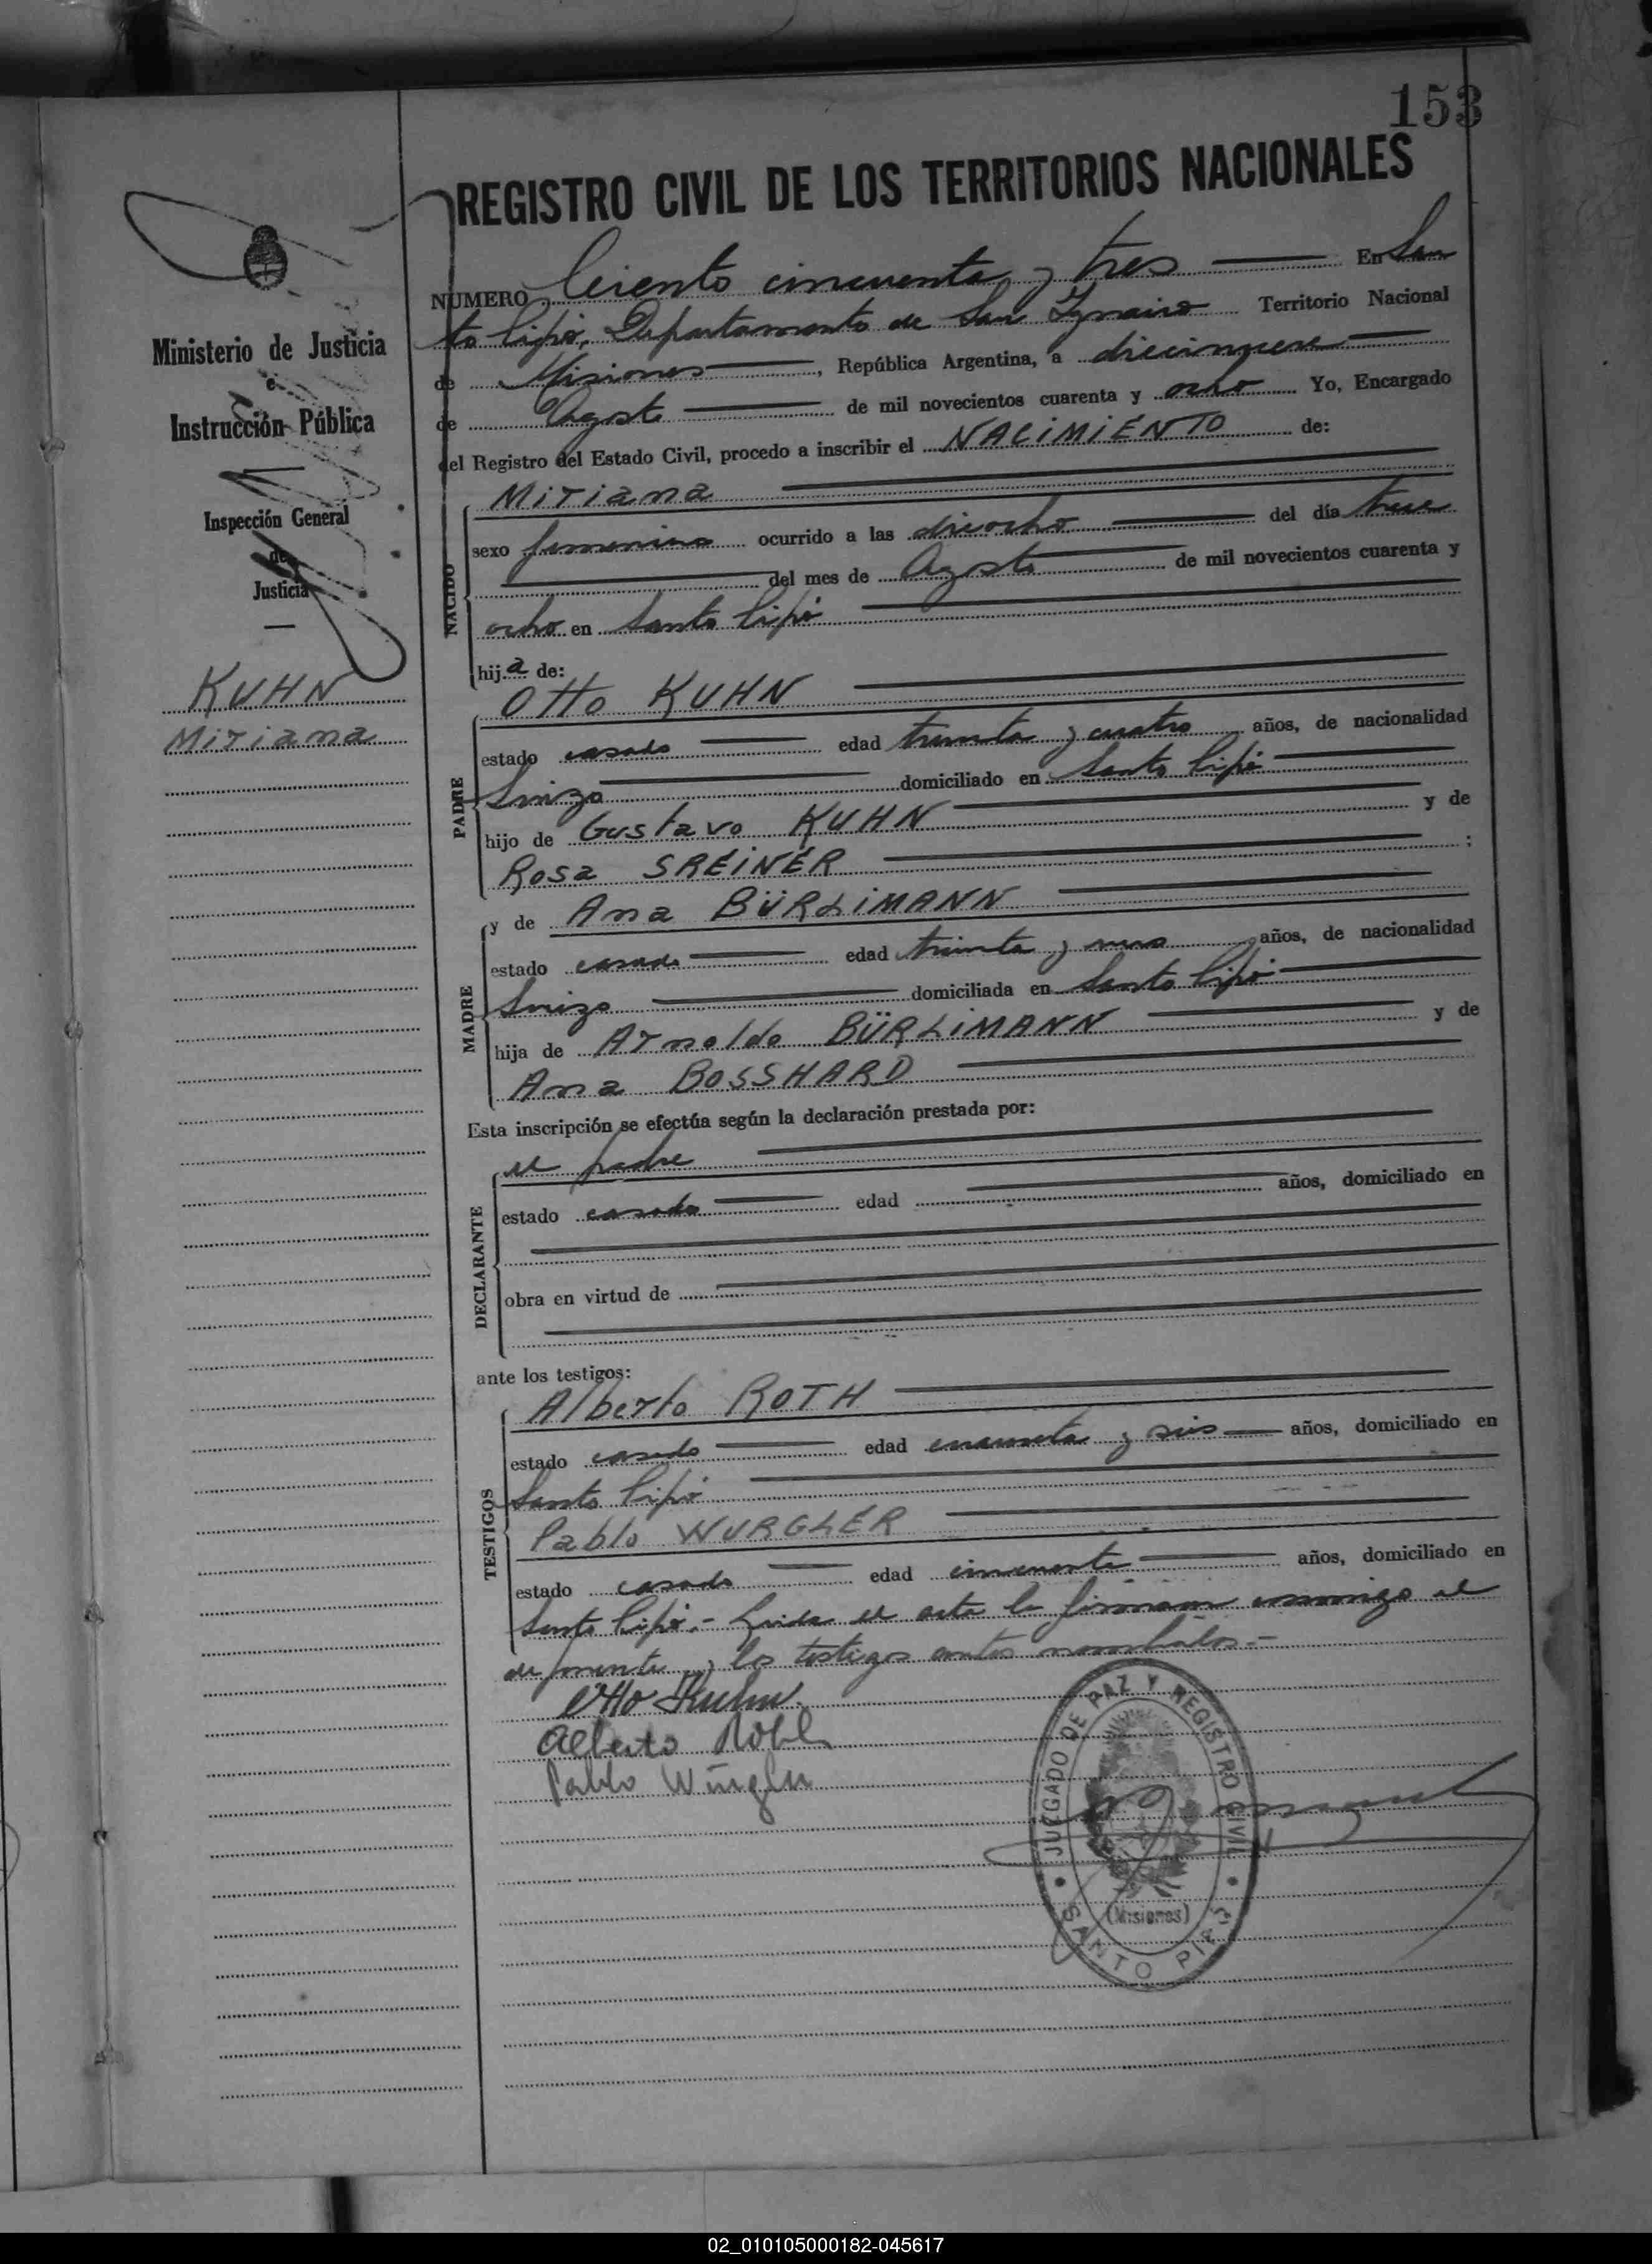 153
REGISTRO CIVIL DE LOS TERRITORIOS NACIONALES
NUMERO Ciento cincuenta y tres En San
to Pipó, Departamento de San Ignacio Territorio Nacional
de Misiones, República Argentina, a diecinueve
de Agosto de mil novecientos cuarenta y ocho Yo, Encargado
del Registro del Estado Civil, procedo a inscribir el NACIMIENTO de:
Ministerio de Justicia
e
Instrucción Pública
Inspección General
de
Justicia
KUHN
Miriana
NACIDO
Miriana
sexo femenino ocurrido a las dieciocho del día trece
del mes de Agosto de mil novecientos cuarenta y
ocho en Santo Pipó
hija de:
PADRE
Otto KUHN
estado casado edad treinta y cuatro años, de nacionalidad
Suizo domiciliado en Santo Pipó
hijo de Gustavo KUHN y de
Rosa SREINER ;
MADRE
y de Ana BÜRLIMANN
estado casada edad treinta y años, de nacionalidad
Suiza domiciliada en Santo Pipó
hija de Arnoldo BÜRLIMANN y de
Ana BOSSHARD
Esta inscripción se efectúa según la declaración prestada por:
DECLARANTE
el padre
estado casado edad años, domiciliado en
obra en virtud de
ante los testigos:
TESTIGOS
Alberto ROTH
estado casado edad cuarenta y seis años, domiciliado en
Santo Pipó
Pablo WURGLER
estado casado edad cincuenta años, domiciliado en
Santo Pipó.- Leída el acta la firman conmigo el
deponente y los testigos antes nombrados.-
Otto Kuhn
Alberto Roth
Pablo Würgler
JUZGADO DE PAZ Y REGISTRO CIVIL
(Misiones)
SANTO PIPÓ
02_010105000182-045617